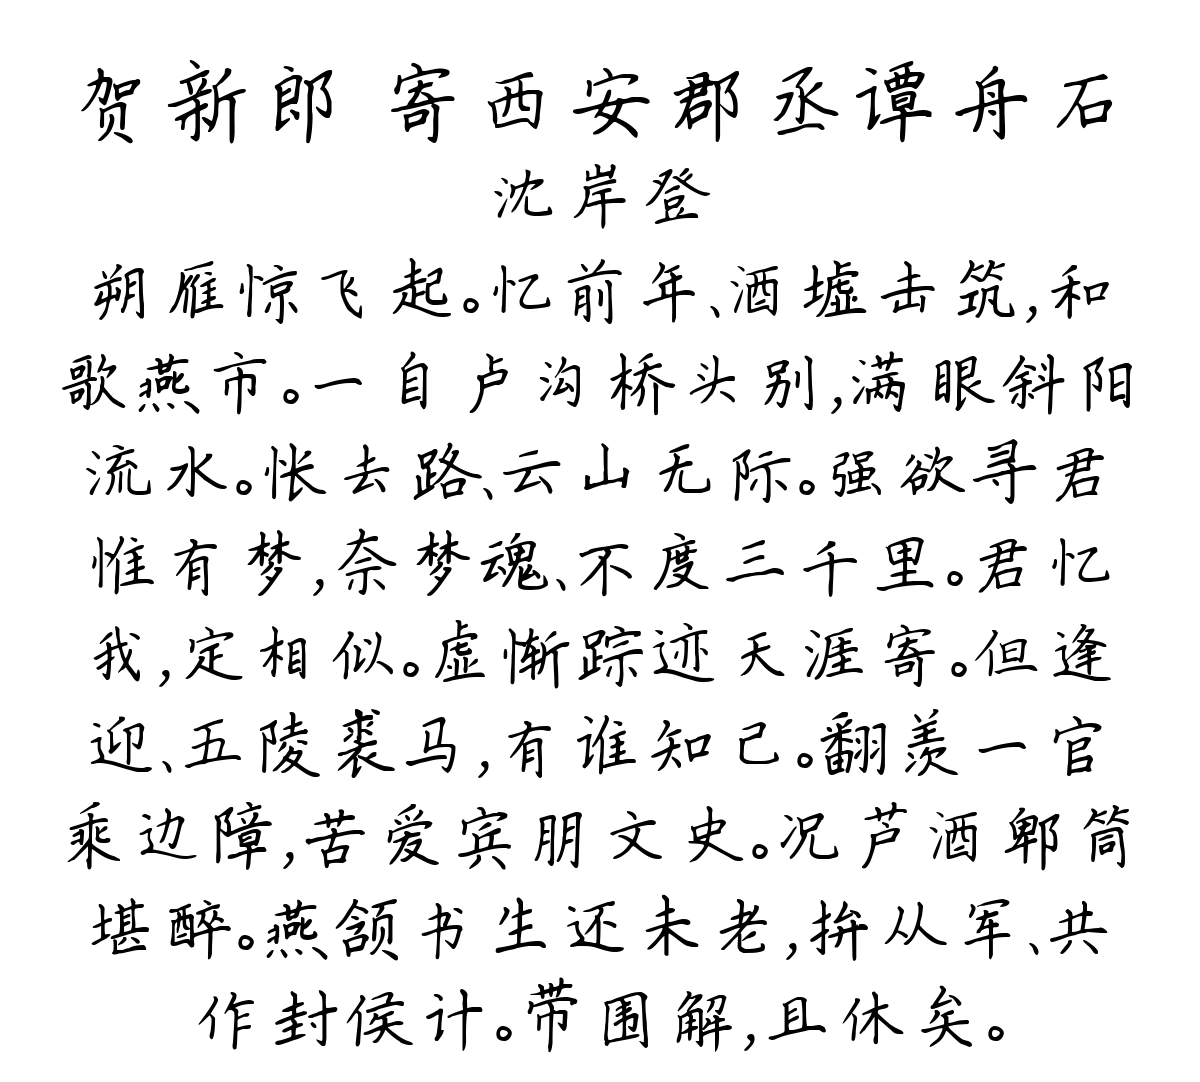 贺新郎 寄西安郡丞谭舟石
沈岸登
朔雁惊飞起。忆前年、酒墟击筑,和
歌燕市。一自卢沟桥头别,满眼斜阳
流水。怅去路、云山无际。强欲寻君
惟有梦,奈梦魂、不度三千里。君忆
我,定相似。虚惭踪迹天涯寄。但逢
迎、五陵裘马,有谁知己。翻羡一官
乘边障,苦爱宾朋文史。况芦酒郫筒
堪醉。燕颔书生还未老,拚从军、共
作封侯计。带围解,且休矣。